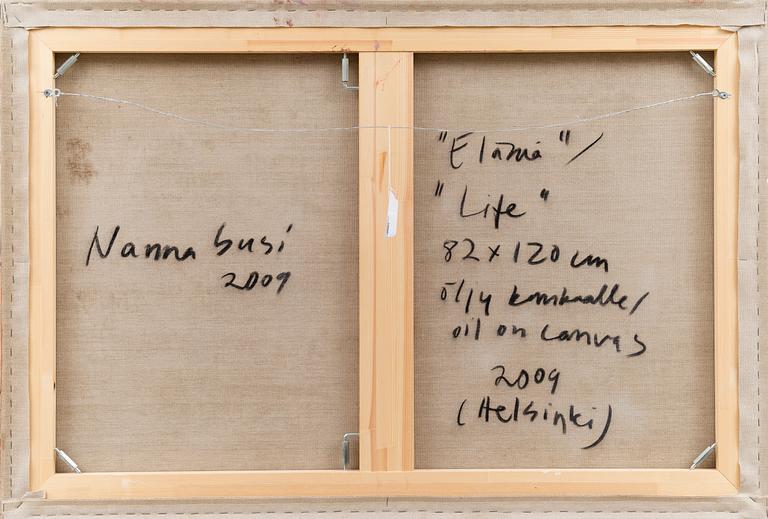 Nanna Susi
2009
"Elämä"/
"Life"
82x120 cm
öljy kankaalle/
oil on canvas
2009
(Helsinki)